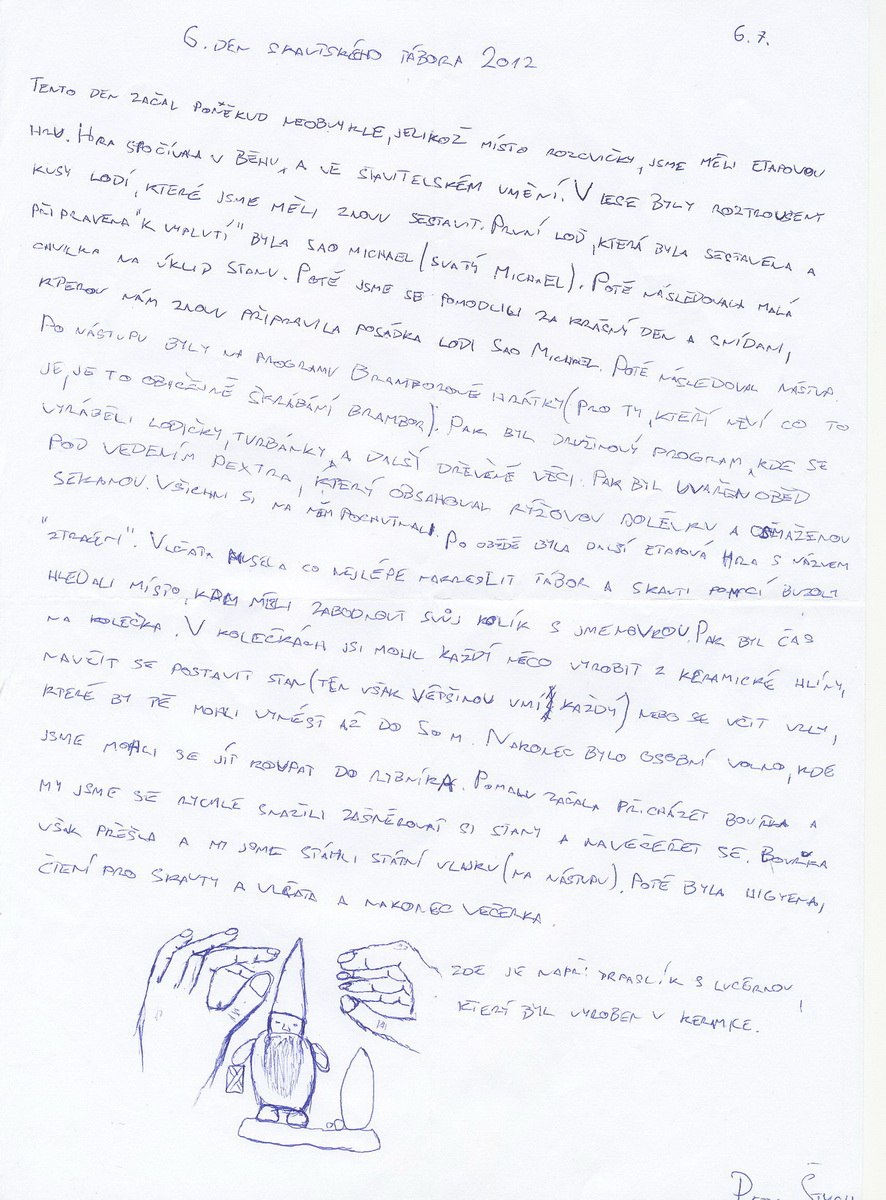 6. DEN SKAUTSKÉHO TÁBORA 2012
6.7.
TENTO DEN ZAČAL PONĚKUD NEOBVYKLE, JELIKOŽ MÍSTO ROZCVIČKY, JSME MĚLI ETAPOVOU
HRU. HRA SPOČÍVALA V BĚHU, A VE STAVITELSKÉM UMĚNÍ. V LESE BYLY ROZTROUŠENY
KUSY LODÍ, KTERÉ JSME MĚLI ZNOVU SESTAVIT. PRVNÍ LOĎ, KTERÁ BYLA SESTAVENA A
PŘIPRAVENA "K VYPLUTÍ" BYLA SAO MICHAEL (SVATÝ MICHAEL). POTÉ NÁSLEDOVALA MALÁ
CHVILKA NA ÚKLID STANU. POTÉ JSME SE POMODLILI ZA KRÁSNÝ DEN A SNÍDANI,
KTEROU NÁM ZNOVU PŘIPRAVILA POSÁDKA LODI SAO MICHAEL. POTÉ NÁSLEDOVAL NÁSTUP.
PO NÁSTUPU BYLY NA PROGRAMU BRAMBOROVÉ HRÁTKY (PRO TY, KTEŘÍ NEVÍ CO TO
JE, JE TO OBYČEJNÉ ŠKRÁBÁNÍ BRAMBOR). PAK BYL DRUŽINOVÝ PROGRAM, KDE SE
VYRÁBĚLI LODIČKY, TURBÁNKY, A DALŠÍ DŘEVĚNÉ VĚCI. PAK BYL UVAŘEN OBĚD
POD VEDENÍM PEXTRA, KTERÝ OBSAHOVAL RÝŽOVOU POLÉVKU A OSMAŽENOU
SEKANOU. VŠICHNI SI NA NĚM POCHUTNALI. PO OBĚDĚ BYLA DALŠÍ ETAPOVÁ HRA S NÁZVEM
"ZTRACENI". VLČATA MUSELA CO NEJLÉPE NAKRESLIT TÁBOR A SKAUTI POMOCÍ BUZOLY
HLEDALI MÍSTO, KAM MĚLI ZABODNOUT SVŮJ KOLÍK S JMENOVKOU. PAK BYL ČAS
NA KOLEČKA. V KOLEČKÁCH JSI MOHL KAŽDÝ NĚCO VYROBIT Z KERAMICKÉ HLÍNY,
NAUČIT SE POSTAVIT STAN (TEN VŠAK VĚTŠINOU UMÍ KAŽDÝ) NEBO SE UČIT UZLY,
KTERÉ BY TĚ MOHLI VYNÉST AŽ DO 50 M. NAKONEC BYLO OSOBNÍ VOLNO, KDE
JSME MOHLI SE JÍT KOUPAT DO RYBNÍKA. POMALU ZAČALA PŘICHÁZET BOUŘKA A
MY JSME SE RYCHLE SNAŽILI ZAŠNĚROVAT SI STANY A NAVEČEŘET SE. BOUŘKA
VŠAK PŘEŠLA A MY JSME STÁHLI STÁTNÍ VLAJKU (NA NÁSTUPU). POTÉ BYLA HIGYENA,
ČTENÍ PRO SKAUTY A VLČATA A NAKONEC VEČERKA.
ZDE JE NAPŘ: TRPASLÍK S LUCERNOU,
KTERÝ BYL VYROBEN V KERAMICE.